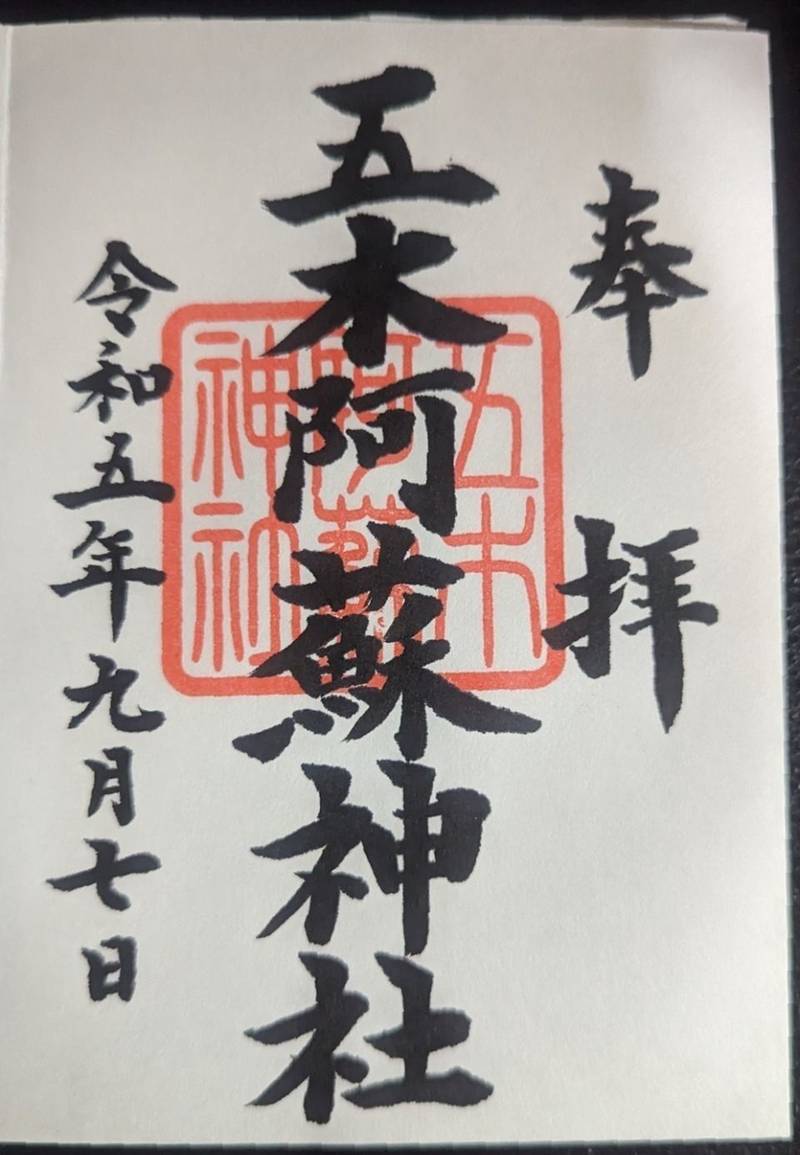 奉拝
五木阿蘇神社
五木
阿蘇
神社
令和五年九月七日